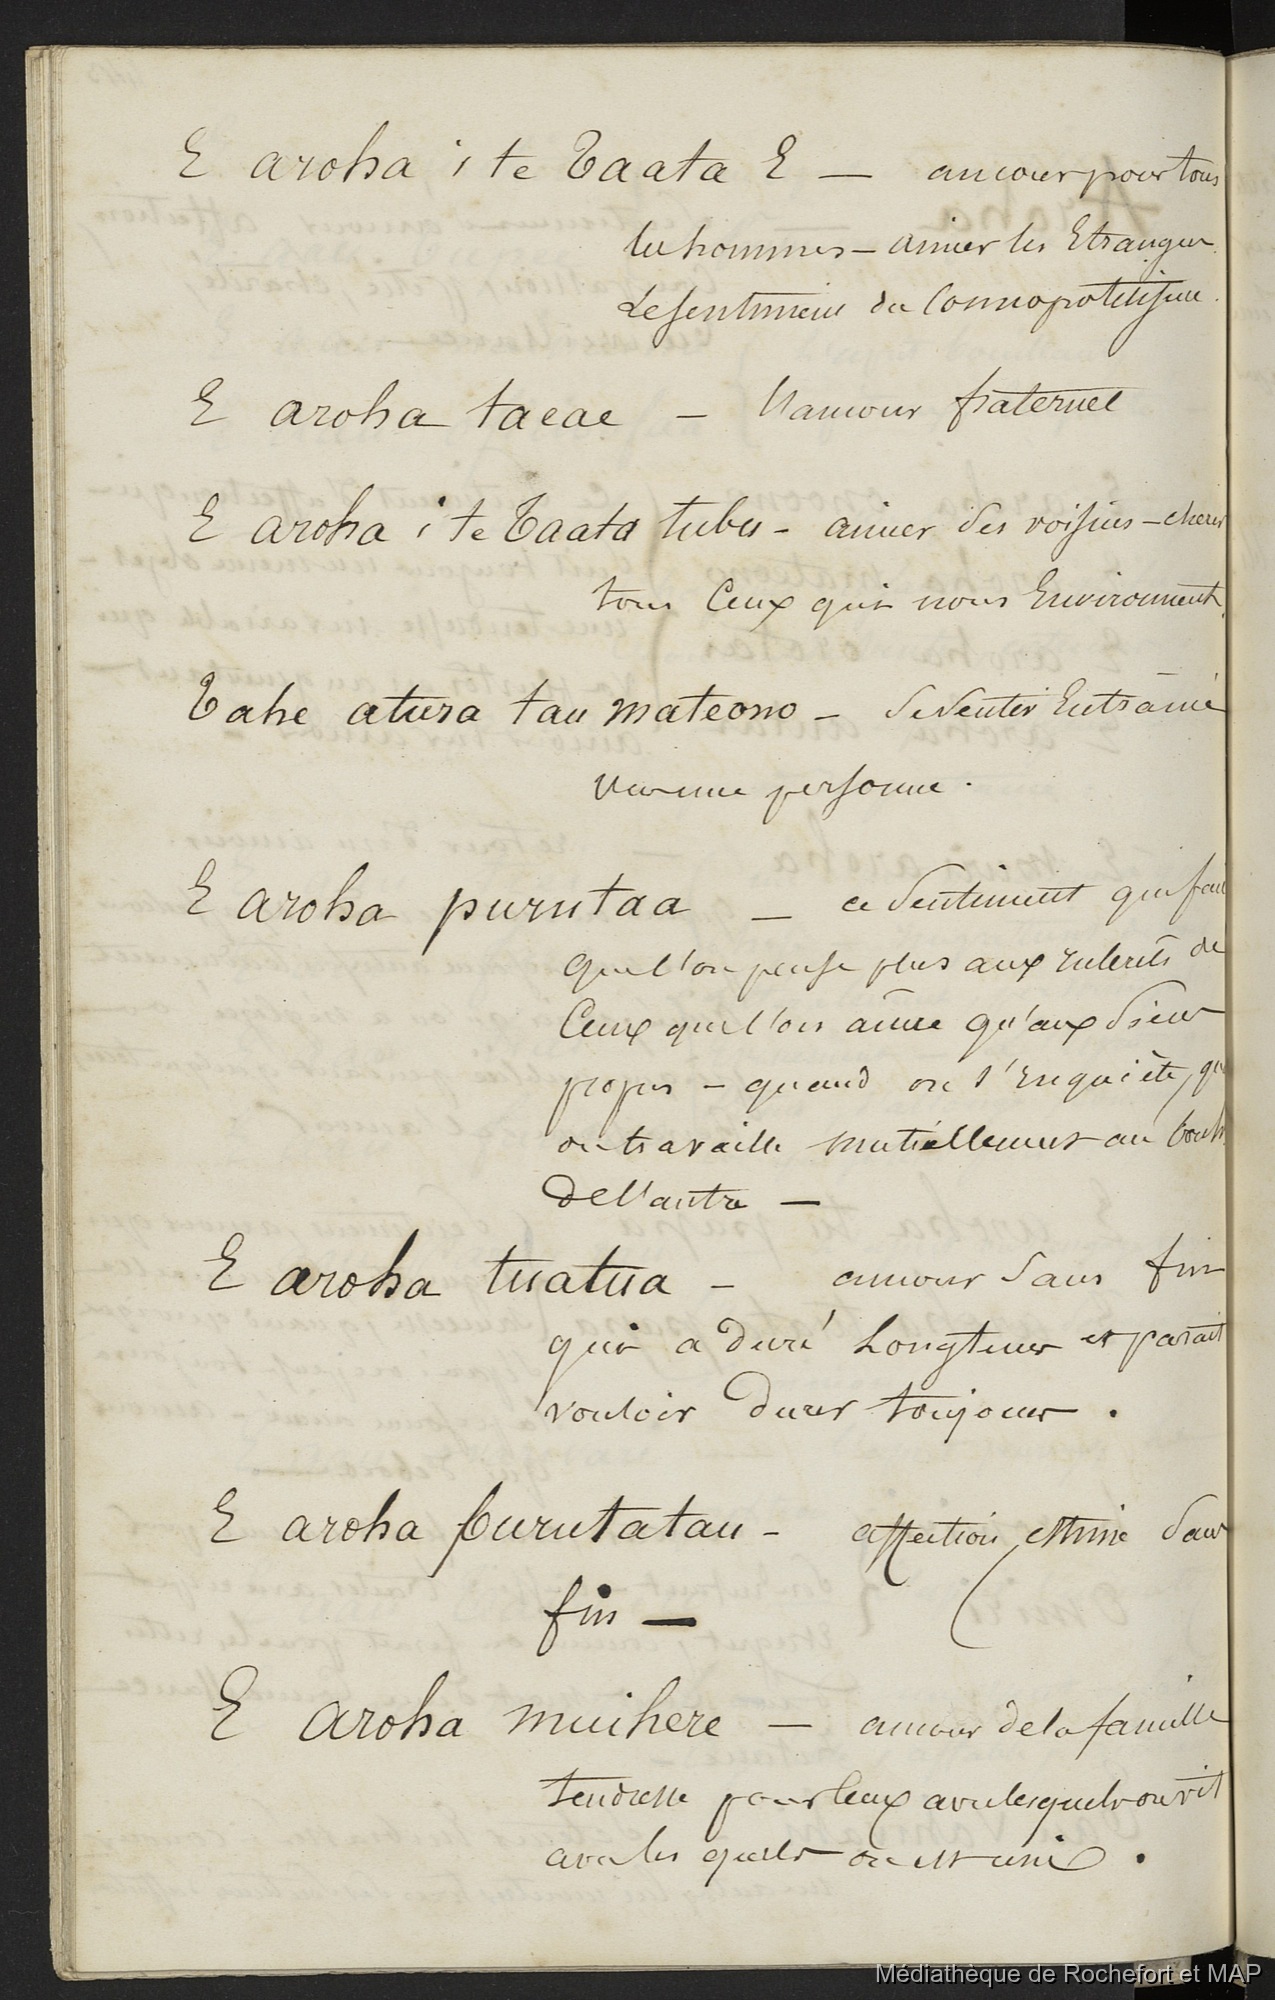 E aroha i te Taata E — amour pour tous
les hommes — aimer les Etrangers
Le sentiment du Cosmopolitisme.
E aroha taeae — l'amour fraternel
E aroha i te Taata tubu - aimer ses voisins — cherir
tous Ceux qui nous Environnent.
Tahe atura tau mateono — se sentir Entrainé
vers une personne.
E aroha purutaa — ce sentiment qui fait
que l'on pense plus aux interets de
Ceux que l'on aime qu'aux siens
propres — quand on s'inquiète,
on travaille mutuellement au bonh
de l'autre —
E aroha tuatua — amour sans fin
qui a duré Longtems et parait
vouloir durer toujours.
E aroha purutatau — affection, estime sans
fin —
E aroha muihere — amour de la famille
tendresse pour Ceux avec lesquels on vit
avec les quels on est uni.
Médiathèque de Rochefort et MAP